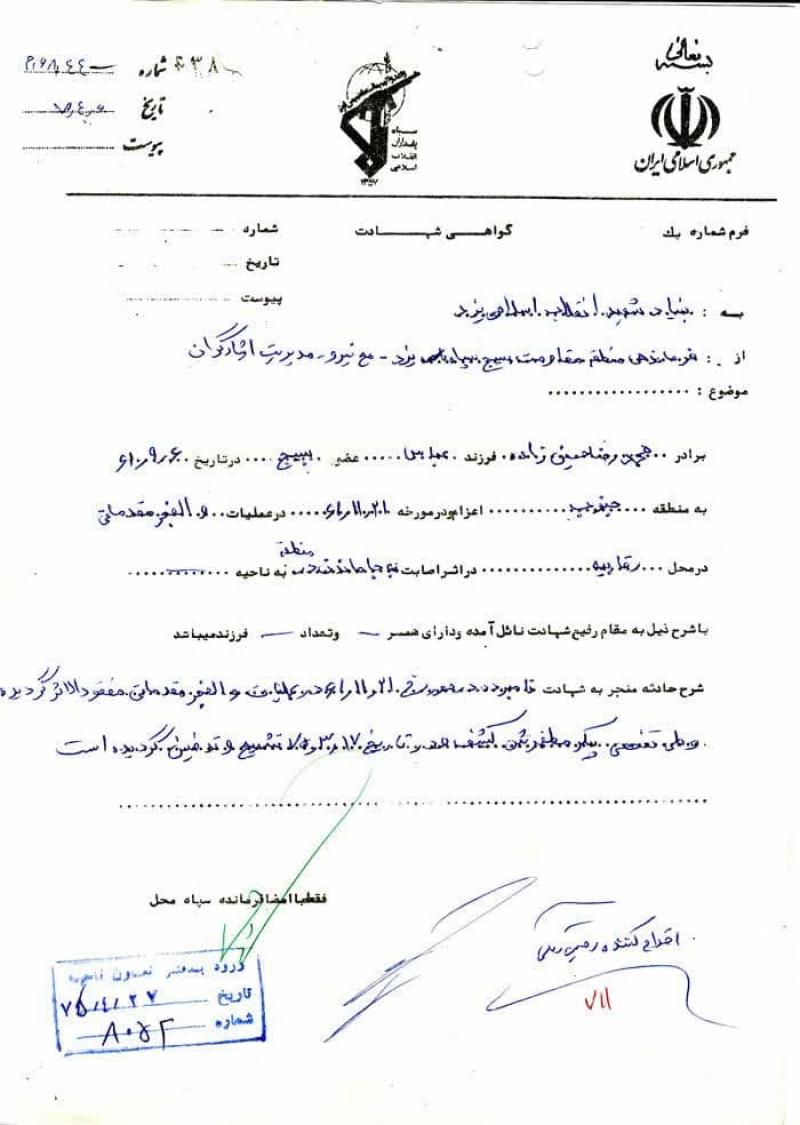 بسمه تعالی
جمهوری اسلامی ایران
سپاه
پاسداران
انقلاب
اسلامی
۱۳۵۷
شماره
تاریخ
پیوست
فرم شماره یك
گواهــی شهــــادت
شماره
تاریخ
پیوست
به : بنیاد شهید انقلاب اسلامی یزد
از : فرماندهی منطقه مقاومت بسیج سپاه یزد - مع نیرو - مدیریت ایثارگران
موضوع :
برادر محمدرضا حسین زاده فرزند عباس عضو بسیج در تاریخ ۶۱/۹/۶
به منطقه جنوب اعزام و در مورخه ۶۱/۱۱/۲۰ در عملیات والفجر مقدماتی
در محل رقابیه در اثر اصابت به جا ماندن در منطقه به ناحیه
با شرح ذیل به مقام رفیع شهادت نائل آمده و دارای همسر — و تعداد — فرزند میباشد
شرح حادثه منجر به شهادت نامبرده در مورخ در عملیات والفجر مقدماتی مفقودالاثر گردیده
و طی تفحص پیکر مطهرش کشف و در تاریخ ۷۵/۳/۱۷ تشییع و تدفین گردیده است
فقط با امضا فرمانده سپاه محل
اقدام کننده
۷/۱۱
ورود بدفتر تعاون ناحیه
تاریخ ۷۵/۴/۲۷
شماره ۸۰۵۴